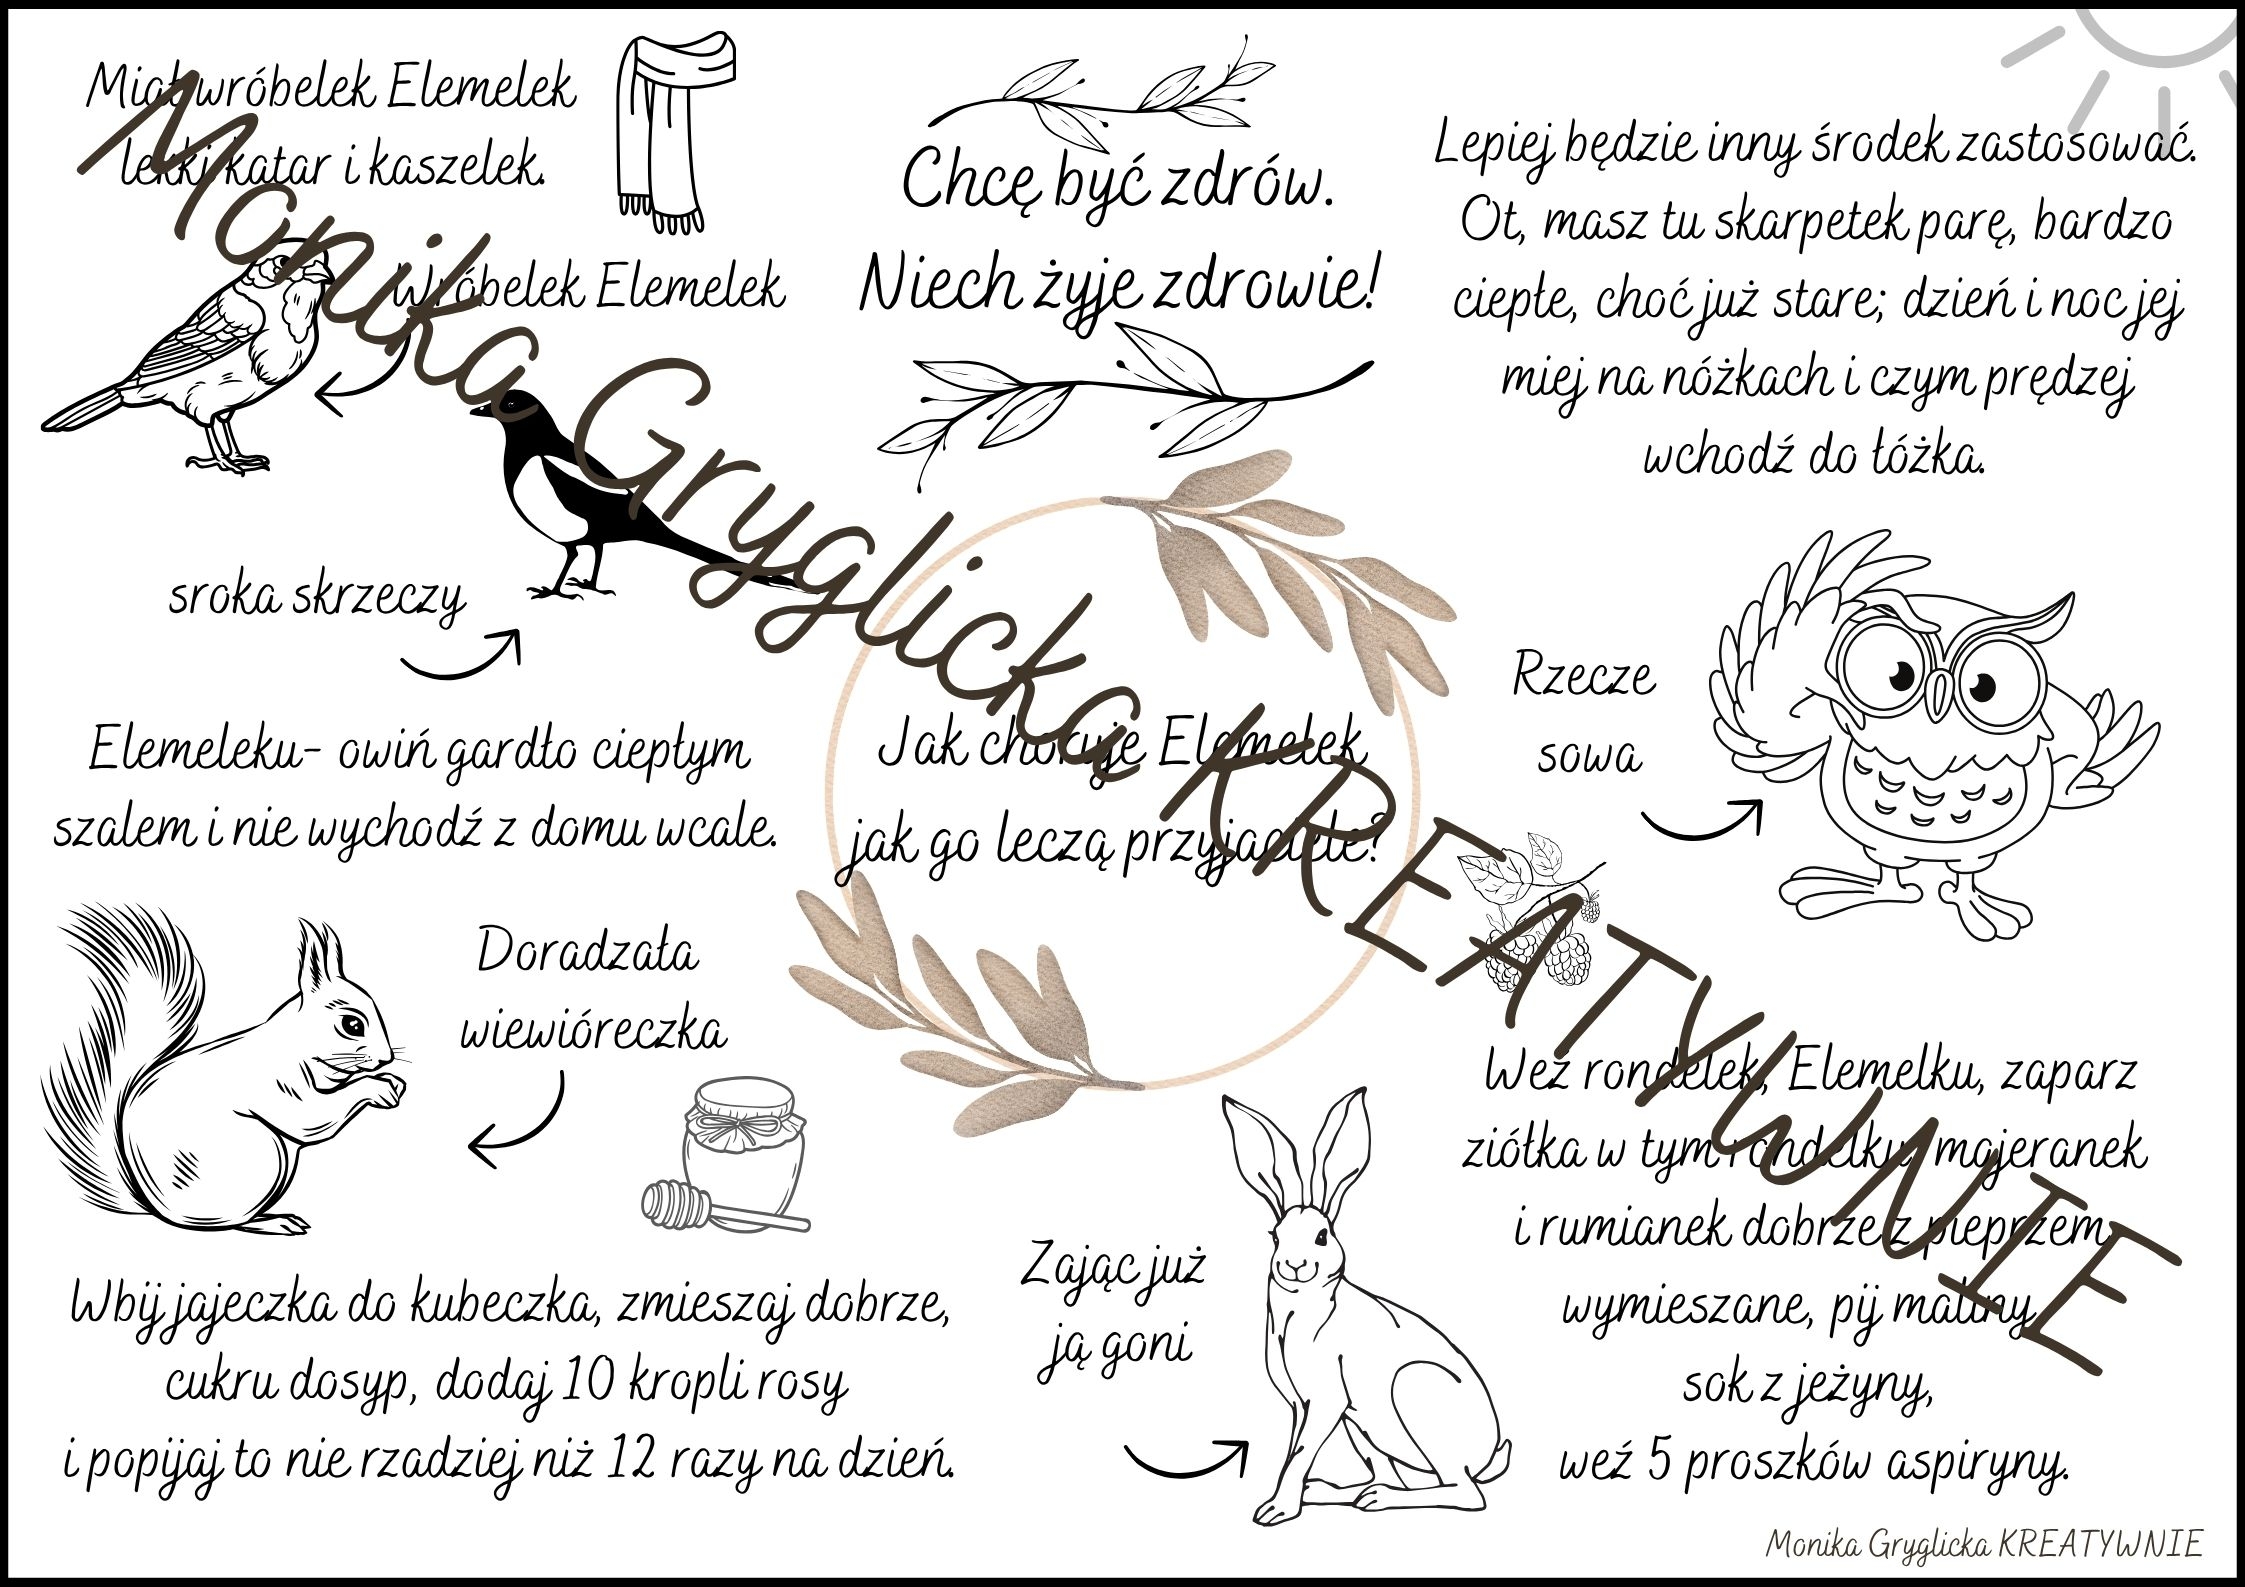 Miał wróbelek Elemelek
lekki katar i kaszelek.
Wróbelek Elemelek
sroka skrzeczy
Elemeleku- owiń gardło ciepłym
szalem i nie wychodź z domu wcale.
Doradzała
wiewióreczka
Wbij jajeczka do kubeczka, zmieszaj dobrze,
cukru dosyp, dodaj 10 kropli rosy
i popijaj to nie rzadziej niż 12 razy na dzień.
Chcę być zdrów.
Niech żyje zdrowie!
Jak choruje Elemelek
jak go leczą przyjaciele?
Zając już
ją goni
Lepiej będzie inny środek zastosować.
Ot, masz tu skarpetek parę, bardzo
ciepłe, choć już stare; dzień i noc jej
miej na nóżkach i czym prędzej
wchodź do łóżka.
Rzecze
sowa
Weź rondelek, Elemelku, zaparz
ziółka w tym rondelku, majeranek
i rumianek dobrze z pieprzem
wymieszane, pij maliny
sok z jeżyny,
weź 5 proszków aspiryny.
Monika Gryglicka KREATYWNIE
Monika Gryglicka KREATYWNIE